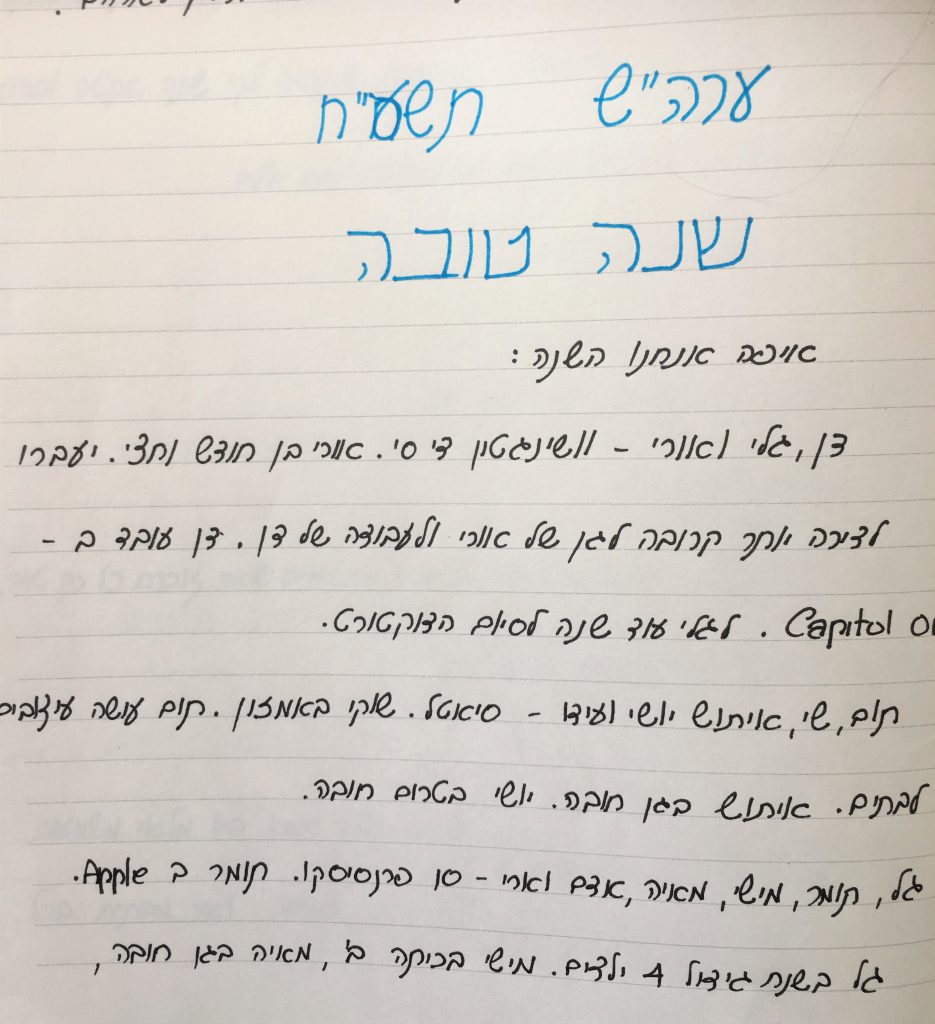 ערה"ש תשע"ח
שנה טובה
איפה אנחנו השנה:
דן, גלי ואורי - וושינגטון די סי. אורי בן חודש וחצי. יעברו
לדירה יותר קרובה לגן של אורי ולעבודה של דן. דן עובד ב -
Capitol On. לגלי עוד שנה לסיום הדוקטורט.
תום, שי, איתוש יושי ועידו - סיאטל. שוקי באמזון. תום עושה עיצובים
לבתים. איתוש בגן חובה. יושי בטרום חובה.
גל, תומר, מישי, מאיה, אדם וארי - סן פרנסיסקו. תומר ב Apple.
גל בשנת גידול 4 ילדים. מישי בכיתה ב', מאיה בגן חובה,